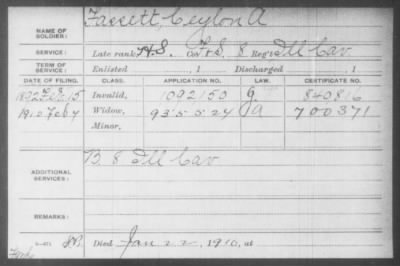 Fassett Ceylon A
NAME OF SOLDIER:
SERVICE: Late rank H.S. Co. F.&S., 8 Reg't Ill Cav
TERM OF SERVICE: Enlisted , 1 Discharged , 1
DATE OF FILING. CLASS. APPLICATION NO. LAW. CERTIFICATE NO.
1892 Feb 15 Invalid, 1092153 G. 840816
1910 Feb 7 Widow, 935524 A 700371
Minor,
B. 8 Ill Cav
ADDITIONAL SERVICES:
REMARKS:
Died Jan 22, 1910, at